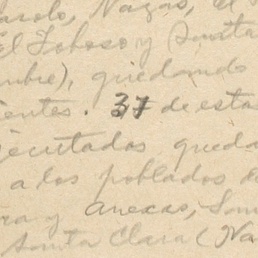 Nazas, el
El Toboso y Santa
mbre), quedando
ientes. 37 de estas
jecutados queda
a los poblados de
ra y Anexas, San
Santa Clara (Na